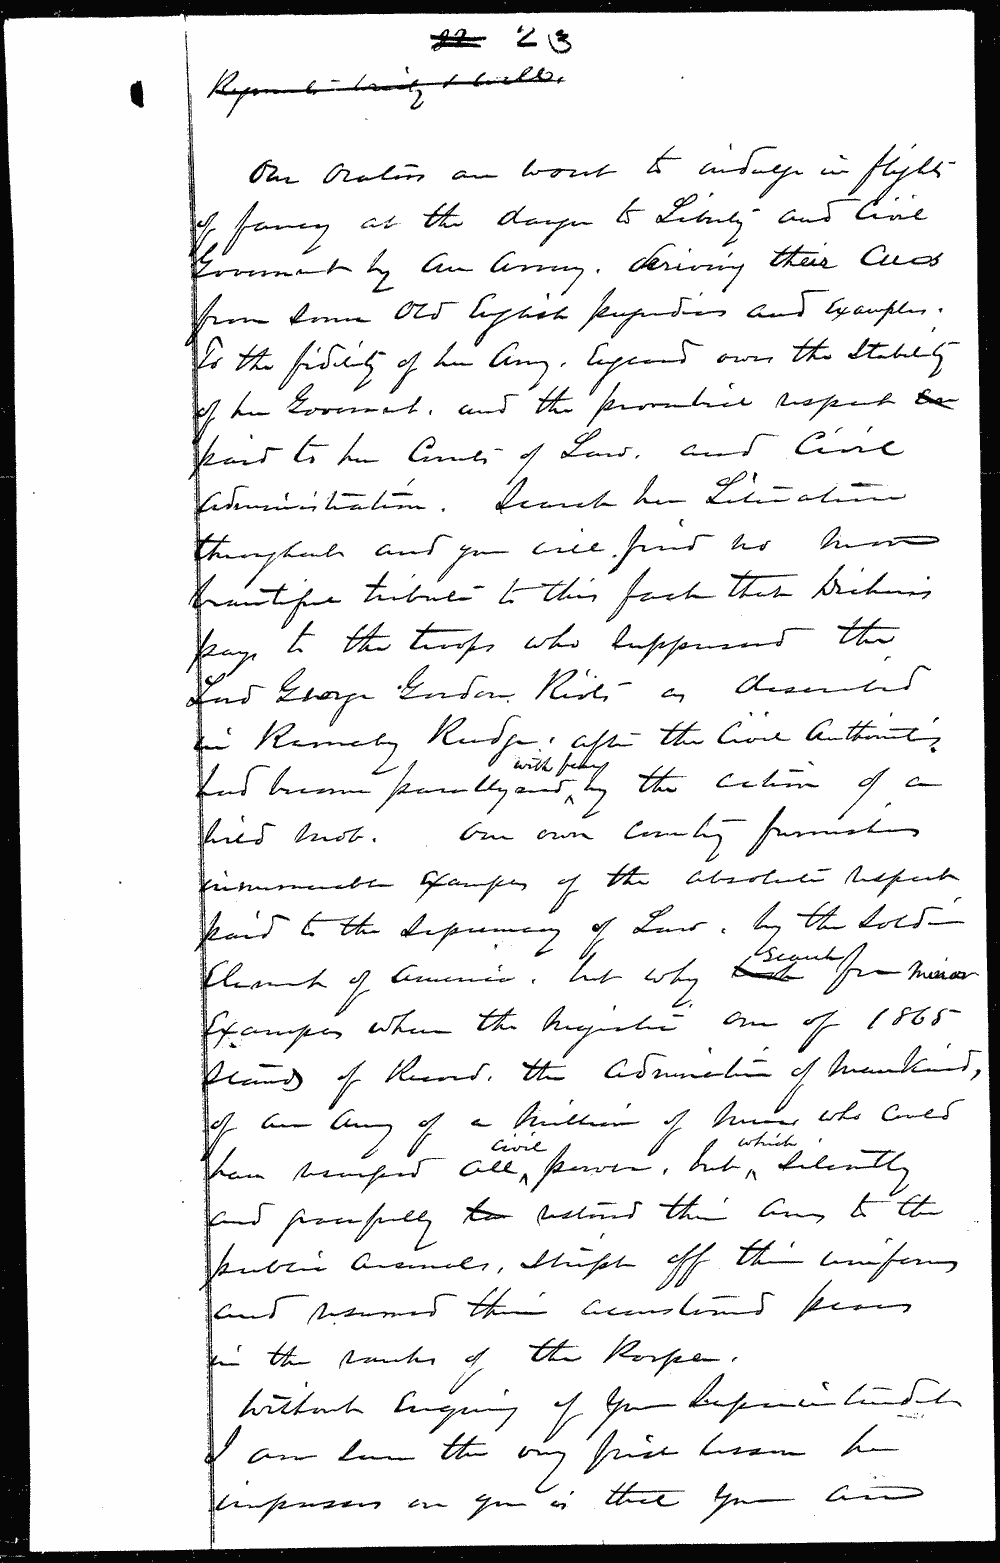 23
Our Orators are wont to indulge in flights
of fancy at the danger to Liberty and Civil
Government by an Army. deriving their Cues
from some Old English prejudices and Examples.
To the fidelity of her Army. England owes the Stability
of her Government. and the proverbial respect
paid to her Courts of Law. and Civil
administration. Search her Literature
throughout and you will find no more
beautiful tribute to this fact than Dickens
pays to the troops who suppressed the
Lord George Gordon Riots as described
in Barnaby Rudge. after the Civil Authorities
had become paralyzed with fear by the action of a
hired mob. Our own country furnishes
innumerable Examples of the absolute respect
paid to the Supremacy of Law. by the Soldier
Element of America. but why search for minor
Examples when the Majestic one of 1865
stands of Record. the admiration of Mankind,
of an army of a Million of men, who could
have usurped all civil power. but which silently
and gracefully restored their arms to the
public arsenals, stript off their uniforms
and resumed their accustomed places
in the ranks of the People.
Without Enquiring of Your Superintendent
I am sure the very first lesson he
impresses on you is that Your aim